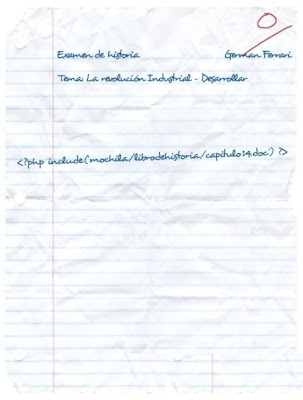 0
Examen de historia German Ferrari
Tema: La revolución Industrial - Desarrollar
<?php include('mochila/librodehistoria/capitulo14.doc') ?>